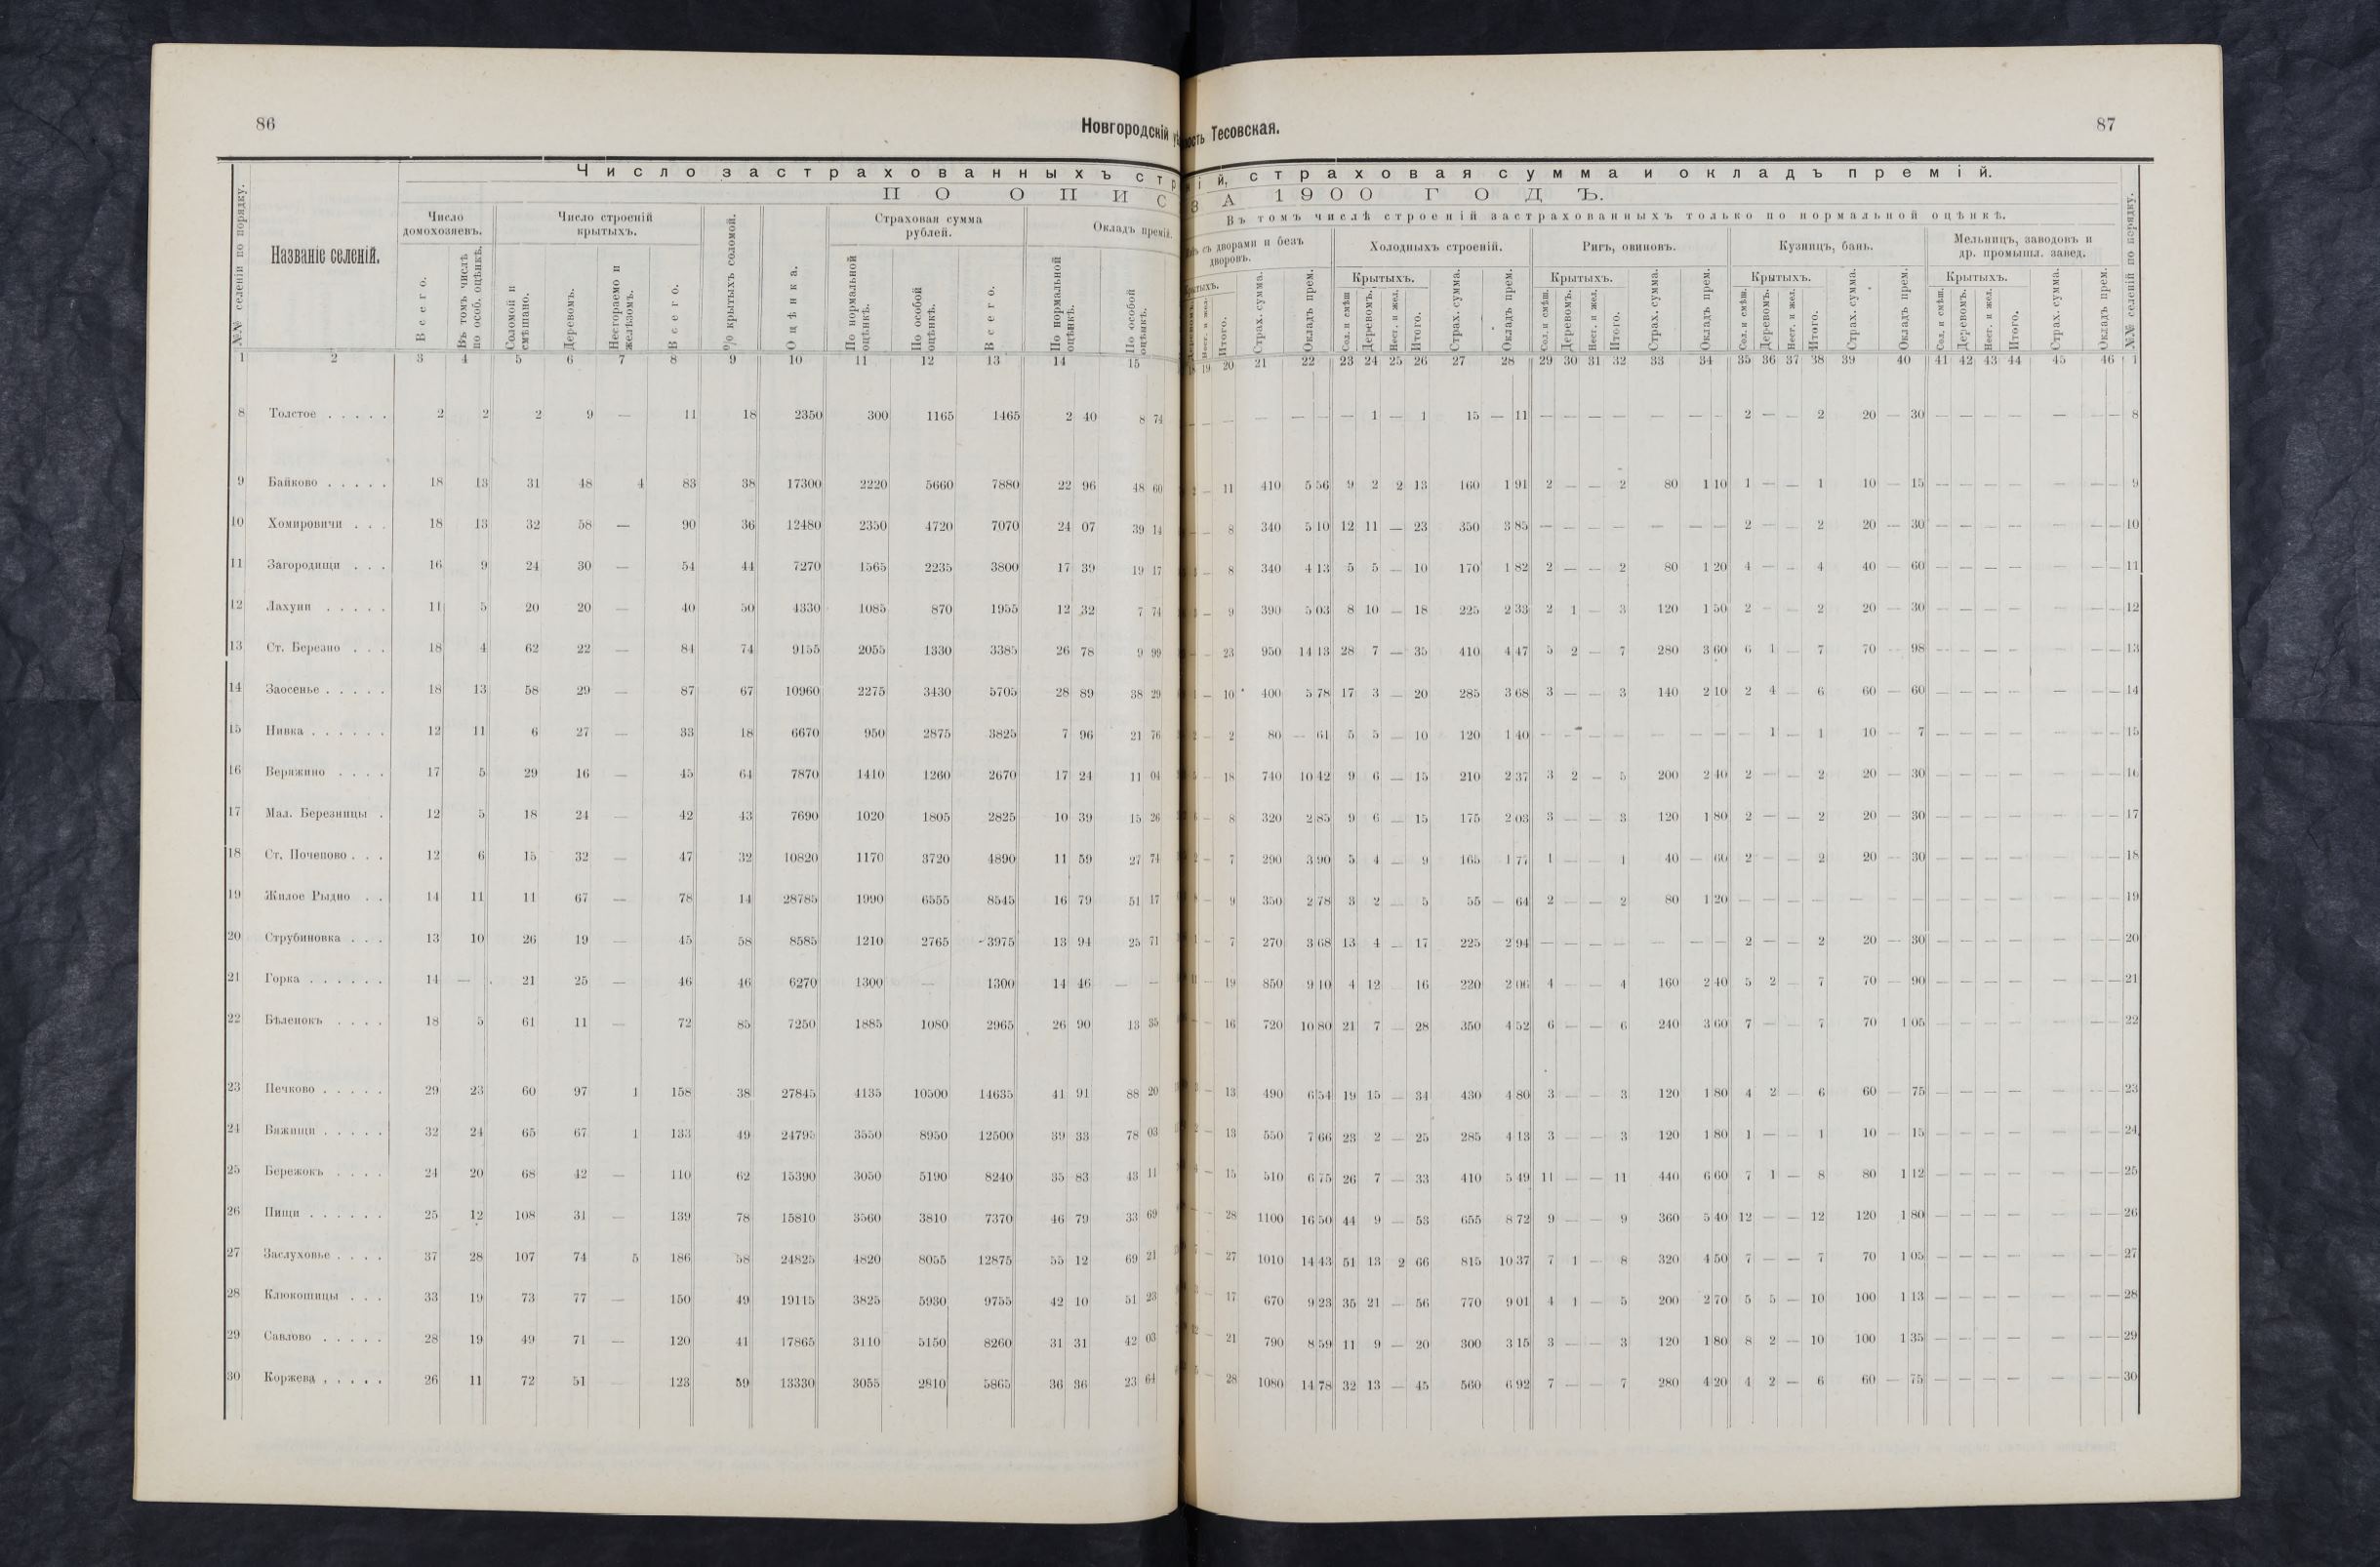 86
Новгородскій
ость Тесовская.
87
Число застрахованныхъ стр
ій, страховая сумма и окладъ премій.
ПО ОПИС
ЗА 1900 ГОДЪ.
№№ селеній по порядку.
Названіе селеній.
Число домохозяевъ.
Всего.
Въ томъ числѣ по особ. оцѣнкѣ.
Число строеній крытыхъ.
Соломой и смѣшано.
Деревомъ.
Несгораемо и желѣзомъ.
Всего.
% крытыхъ соломой.
Оцѣнка.
Страховая сумма рублей.
По нормальной оцѣнкѣ.
По особой оцѣнкѣ.
Всего.
Окладъ премій.
По нормальной оцѣнкѣ.
По особой оцѣнкѣ.
Въ томъ числѣ строеній застрахованныхъ только по нормальной оцѣнкѣ.
съ дворами и безъ дворовъ.
Итого.
Страх. сумма.
Окладъ прем.
Холодныхъ строеній.
Крытыхъ.
Сол. и смѣш
Деревомъ.
Несг. и жел.
Итого.
Страх. сумма.
Окладъ прем.
Ригъ, овиновъ.
Крытыхъ.
Сол. и смѣш.
Деревомъ.
Несг. и жел.
Итого.
Страх. сумма.
Окладъ прем.
Кузницъ, бань.
Крытыхъ.
Сол. и смѣш.
Деревомъ.
Несг. и жел.
Итого.
Страх. сумма.
Окладъ прем.
Мельницъ, заводовъ и др. промышл. завед.
Крытыхъ.
Сол. и смѣш.
Деревомъ.
Несг. и жел.
Итого.
Страх. сумма.
Окладъ прем.
№№ селеній по порядку.
1 2 3 4 5 6 7 8 9 10 11 12 13 14 15 19 20 21 22 23 24 25 26 27 28 29 30 31 32 33 34 35 36 37 38 39 40 41 42 43 44 45 46 1
8 Толстое . . . . . 2 2 2 9 — 11 18 2350 300 1165 1465 2 40 8 74 — — — — — — 1 — 1 15 — 11 — — — — — — — 2 — — 2 20 — 30 — — — — — — — 8
9 Байково . . . . . 18 13 31 48 4 83 38 17300 2220 5660 7880 22 96 48 60 — 11 410 5 56 9 2 2 13 160 1 91 2 — — 2 80 1 10 1 — — 1 10 — 15 — — — — — — — 9
10 Хомировичи . . . 18 13 32 58 — 90 36 12480 2350 4720 7070 24 07 39 14 — 8 340 5 10 12 11 — 23 350 3 85 — — — — — — — 2 — — 2 20 — 30 — — — — — — — 10
11 Загородищи . . . 16 9 24 30 — 54 44 7270 1565 2235 3800 17 39 19 17 — 8 340 4 13 5 5 — 10 170 1 82 2 — — 2 80 1 20 4 — — 4 40 — 60 — — — — — — — 11
12 Лахуни . . . . . 11 5 20 20 — 40 50 4330 1085 870 1955 12 32 7 74 — 9 390 5 03 8 10 — 18 225 2 33 2 1 — 3 120 1 50 2 — — 2 20 — 30 — — — — — — — 12
13 Ст. Березно . . . 18 4 62 22 — 84 74 9155 2055 1330 3385 26 78 9 99 — 23 950 14 13 28 7 — 35 410 4 47 5 2 — 7 280 3 60 6 1 — 7 70 — 98 — — — — — — — 13
14 Заосенье . . . . . 18 13 58 29 — 87 67 10960 2275 3430 5705 28 89 38 29 — 10 400 5 78 17 3 — 20 285 3 68 3 — — 3 140 2 10 2 4 — 6 60 — 60 — — — — — — — 14
15 Нивка . . . . . . 12 11 6 27 — 33 18 6670 950 2875 3825 7 96 21 76 — 2 80 — 61 5 5 — 10 120 1 40 — — — — — — — — 1 — 1 10 — 7 — — — — — — — 15
16 Веряжино . . . . 17 5 29 16 — 45 64 7870 1410 1260 2670 17 24 11 04 — 18 740 10 42 9 6 — 15 210 2 37 3 2 — 5 200 2 40 2 — — 2 20 — 30 — — — — — — — 16
17 Мал. Березницы . 12 5 18 24 — 42 43 7690 1020 1805 2825 10 39 15 26 — 8 320 2 85 9 6 — 15 175 2 03 3 — — 3 120 1 80 2 — — 2 20 — 30 — — — — — — — 17
18 Ст. Почепово . . . 12 6 15 32 — 47 32 10820 1170 3720 4890 11 59 27 74 — 7 290 3 90 5 4 — 9 165 1 77 1 — — 1 40 — 60 2 — — 2 20 — 30 — — — — — — — 18
19 Жилое Рыдно . . 14 11 11 67 — 78 14 28785 1990 6555 8545 16 79 51 17 — 9 350 2 78 3 2 — 5 55 — 64 2 — — 2 80 1 20 — — — — — — — — — — — — — — 19
20 Струбиновка . . . 13 10 26 19 — 45 58 8585 1210 2765 3975 13 94 25 71 — 7 270 3 68 13 4 — 17 225 2 94 — — — — — — — 2 — — 2 20 — 30 — — — — — — — 20
21 Горка . . . . . . 14 — 21 25 — 46 46 6270 1300 — 1300 14 46 — — — 19 850 9 10 4 12 16 220 2 06 4 — — 4 160 2 40 5 2 — 7 70 — 90 — — — — — — — 21
22 Бѣленокъ . . . . 18 5 61 11 — 72 85 7250 1885 1080 2965 26 90 13 35 — 16 720 10 80 21 7 — 28 350 4 52 6 — — 6 240 3 60 7 — — 7 70 1 05 — — — — — — — 22
23 Печково . . . . . 29 23 60 97 1 158 38 27845 4135 10500 14635 41 91 88 20 — 13 490 6 54 19 15 — 34 430 4 80 3 — — 3 120 1 80 4 2 — 6 60 — 75 — — — — — — — 23
24 Вяжищи . . . . . 32 24 65 67 1 133 49 24795 3550 8950 12500 39 33 78 03 — 13 550 7 66 23 2 — 25 285 4 13 3 — — 3 120 1 80 1 — — 1 10 — 15 — — — — — — — 24
25 Бережокъ . . . . 24 20 68 42 — 110 62 15390 3050 5190 8240 35 83 43 11 — 15 510 6 75 26 7 — 33 410 5 49 11 — — 11 440 6 60 7 1 — 8 80 1 12 — — — — — — — 25
26 Пищи . . . . . . 25 12 108 31 — 139 78 15810 3560 3810 7370 46 79 33 69 — 28 1100 16 50 44 9 — 53 655 8 72 9 — — 9 360 5 40 12 — — 12 120 1 80 — — — — — — — 26
27 Заслуховье . . . . 37 28 107 74 5 186 58 24825 4820 8055 12875 55 12 69 21 — 27 1010 14 43 51 13 2 66 815 10 37 7 1 — 8 320 4 50 7 — — 7 70 1 05 — — — — — — — 27
28 Клюкошицы . . . 33 19 73 77 — 150 49 19115 3825 5930 9755 42 10 51 23 — 17 670 9 23 35 21 — 56 770 9 01 4 1 — 5 200 2 70 5 5 — 10 100 1 13 — — — — — — — 28
29 Савлово . . . . . 28 19 49 71 — 120 41 17865 3110 5150 8260 31 31 42 03 — 21 790 8 59 11 9 — 20 300 3 15 3 — — 3 120 1 80 8 2 — 10 100 1 35 — — — — — — — 29
30 Коржева . . . . . 26 11 72 51 — 123 59 13330 3055 2810 5865 36 36 23 64 — 28 1080 14 78 32 13 — 45 560 6 92 7 — — 7 280 4 20 4 2 — 6 60 — 75 — — — — — — — 30